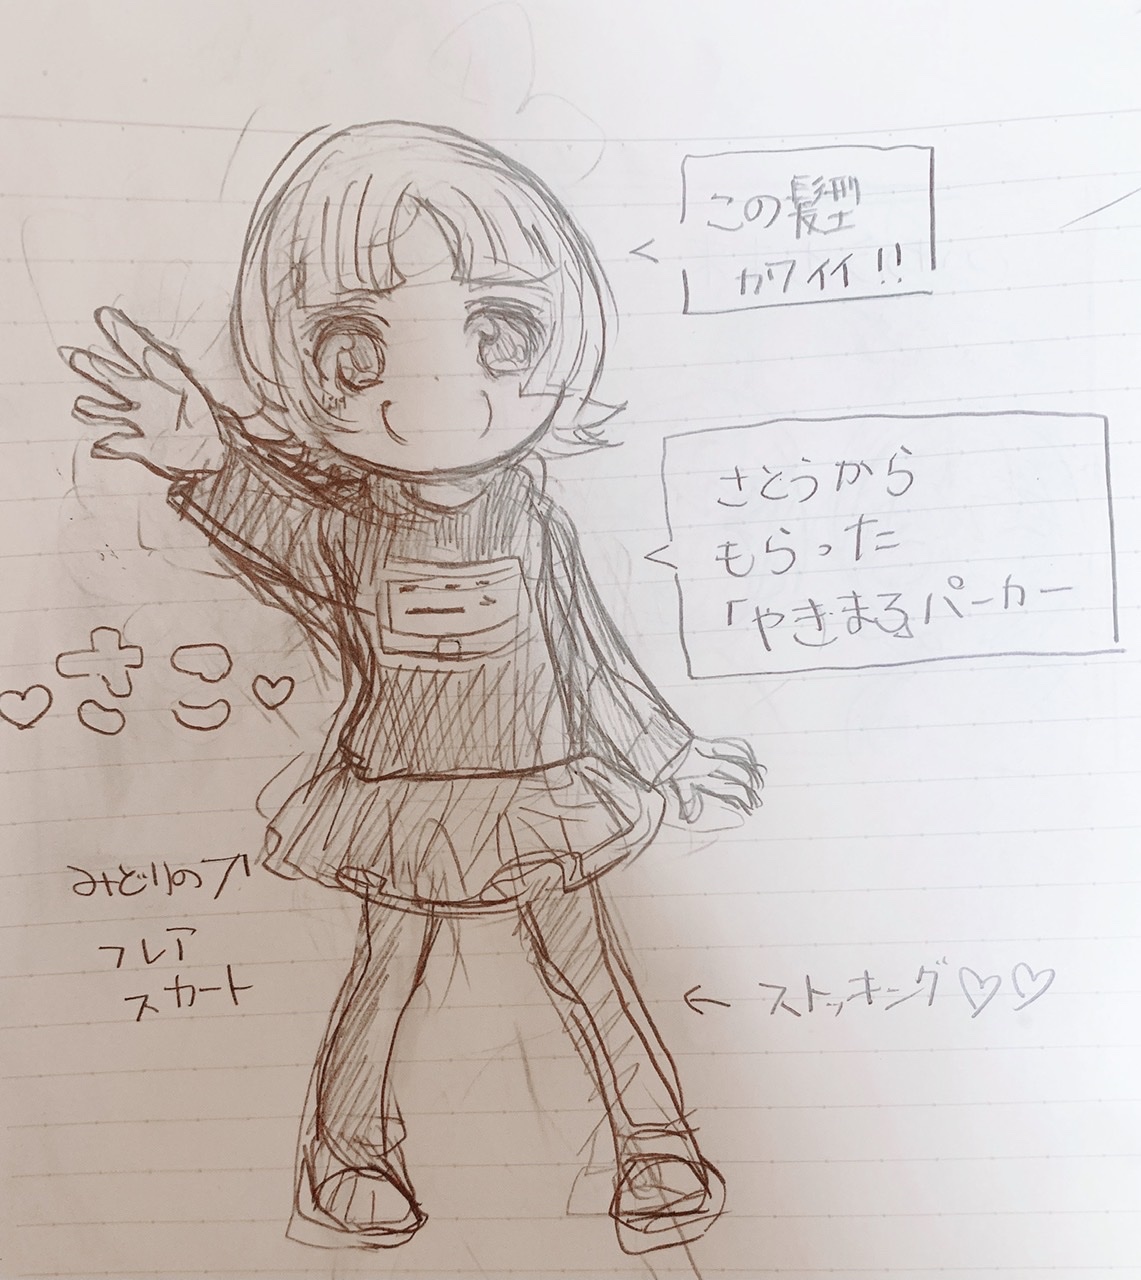 この髪型
カワイイ!!
さとうから
もらった
「やきまるパーカー
みどりのフ
フレア
スカート
← ストッキング♡♡